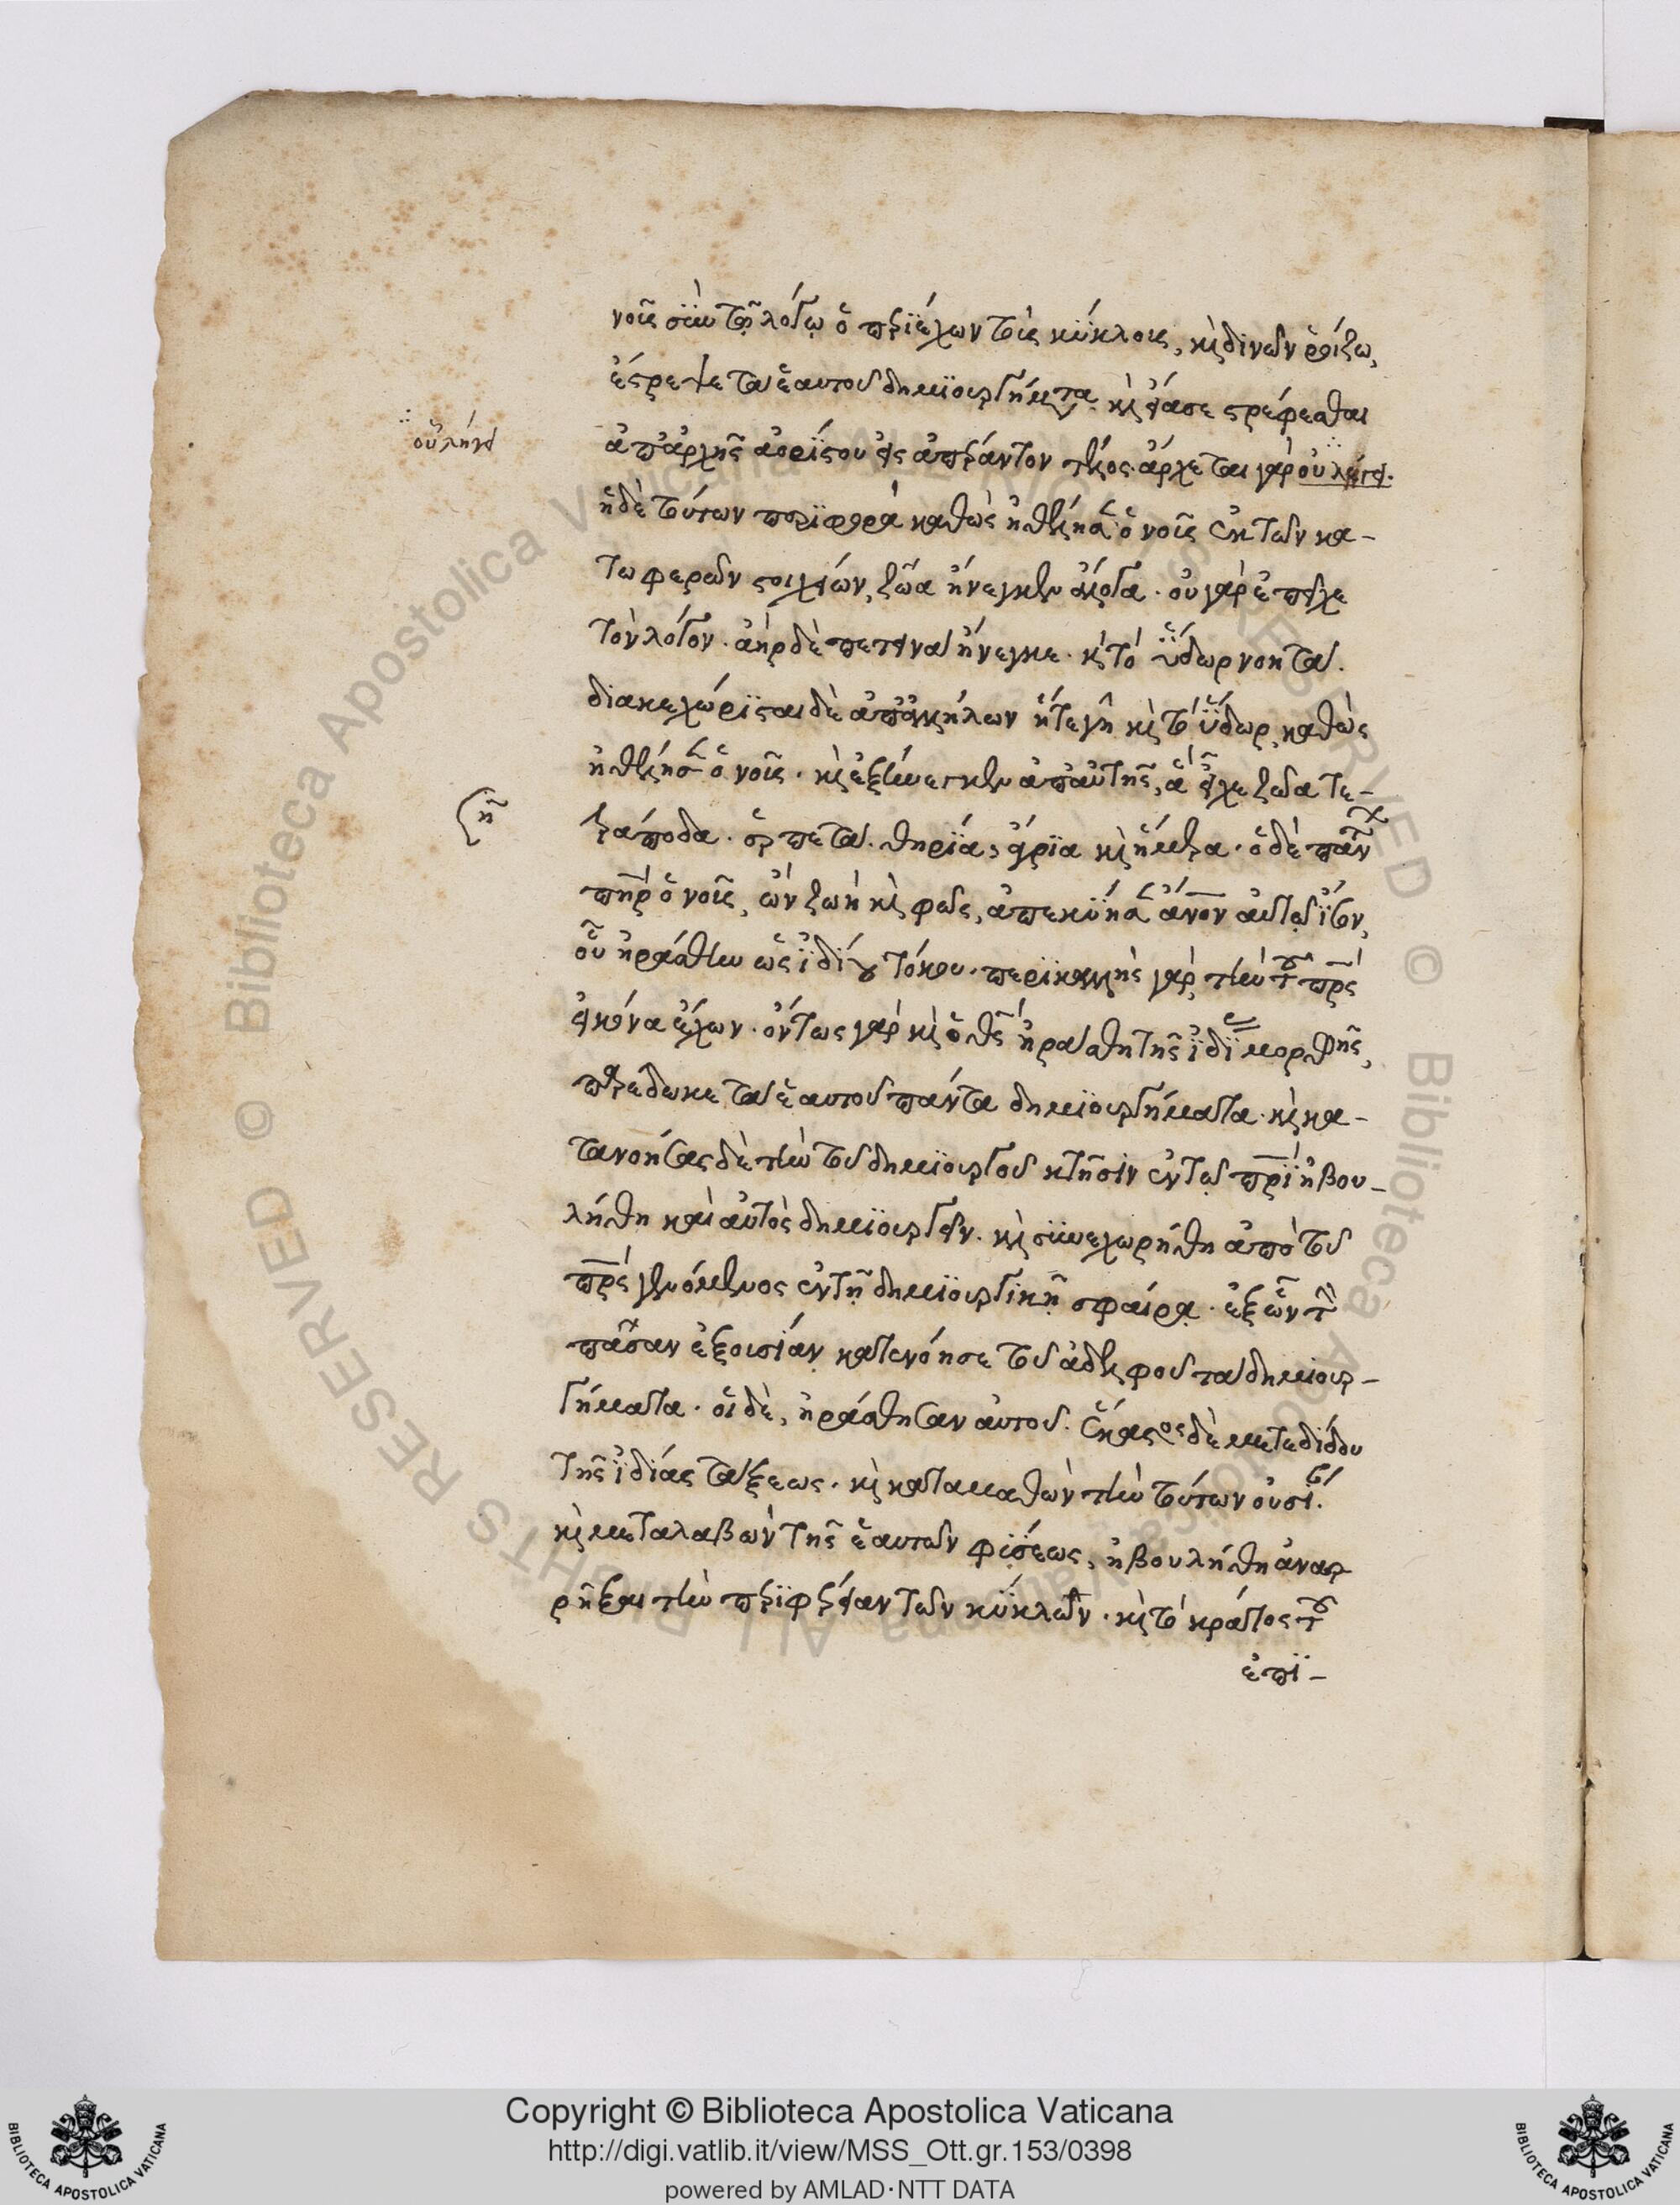 νοῦς σὺν τῷ λόγῳ ὁ περϊέχων τοὺς κύκλους, καὶ δινῶν ῥοίζω,
ἔστρεψε τὰ ἑαυτοῦ δημϊουργήματα. καὶ εἴασε στρέφεσθαι
οὗ λήγει
ἀπ' ἀρχῆς ἀορίστου εἰς ἀπέραντον τέλος. ἄρχεται γὰρ οὗ λέγει.
ἡ δὲ τούτων περϊφορὰ καθὼς ἠθέλησεν ὁ νοῦς ἐκ τῶν κα-
τωφερῶν στοιχείων, ζῶα ἤνεγκεν ἄλογα. οὐ γὰρ ἐπεῖχε
τὸν λόγον. ἀὴρ δὲ πετεινὰ ἤνεγκε. καὶ τὸ ὕδωρ νηκτά.
διακεχώρϊσται δὲ ἀπ' ἀλλήλων ἥτε γῆ καὶ τὸ ὕδωρ, καθὼς
ἠθέλησεν ὁ νοῦς. καὶ ἐξήνεγκεν ἀπ' αὐτῆς, ἃ εἶχε ζῶα τε-
τράποδα. ἑρπετά. θηρία, ἄγρϊα καὶ ἥμερα. ὁ δὲ πάντων
πηρ ὁ νοῦς, ὢν ζωὴ καὶ φῶς, ἀπεκύησεν ἄνον αὐτῷ ἴσον,
οὗ ἠράσθη ὡς ἰδίου τόκου. περϊκαλλὴς γὰρ, τὴν τοῦ πρς
εἰκόνα ἔχων. ὄντως γὰρ καὶ ὁ θς ἠράσθη τῆς ἰδίας μορφῆς,
παρέδωκε τὰ ἑαυτοῦ πάντα δημϊουργήματα. καὶ κα-
τανοήσας δὲ τὴν τοῦ δημϊουργοῦ κτῆσιν ἐν τῷ πρϊ ἠβου-
λήθη καὶ αὐτὸς δημϊουργεῖν. καὶ συνεχωρήθη ἀπὸ τοῦ
πρς γενόμενος ἐν τῇ δημϊουργικῇ σφαίρᾳ. ἐξῶν τὴν
πᾶσαν ἐξουσίαν κατενόησε τοῦ ἀδελφοῦ τὰ δημιουρ-
γήματα. οἱ δὲ, ἠράσθησαν αὐτοῦ. ἕκαστος δὲ μετεδίδου
τῆς ἰδίας τάξεως. καὶ καταμαθὼν τὴν τούτων οὐσίαν.
καὶ μεταλαβὼν τῆς ἑαυτῶν φύσεως, ἠβουλήθη ἀναρ-
ρῆξαι τὴν περϊφέρειαν τῶν κύκλων. καὶ τὸ κράτος τοῦ
ἐπϊ-